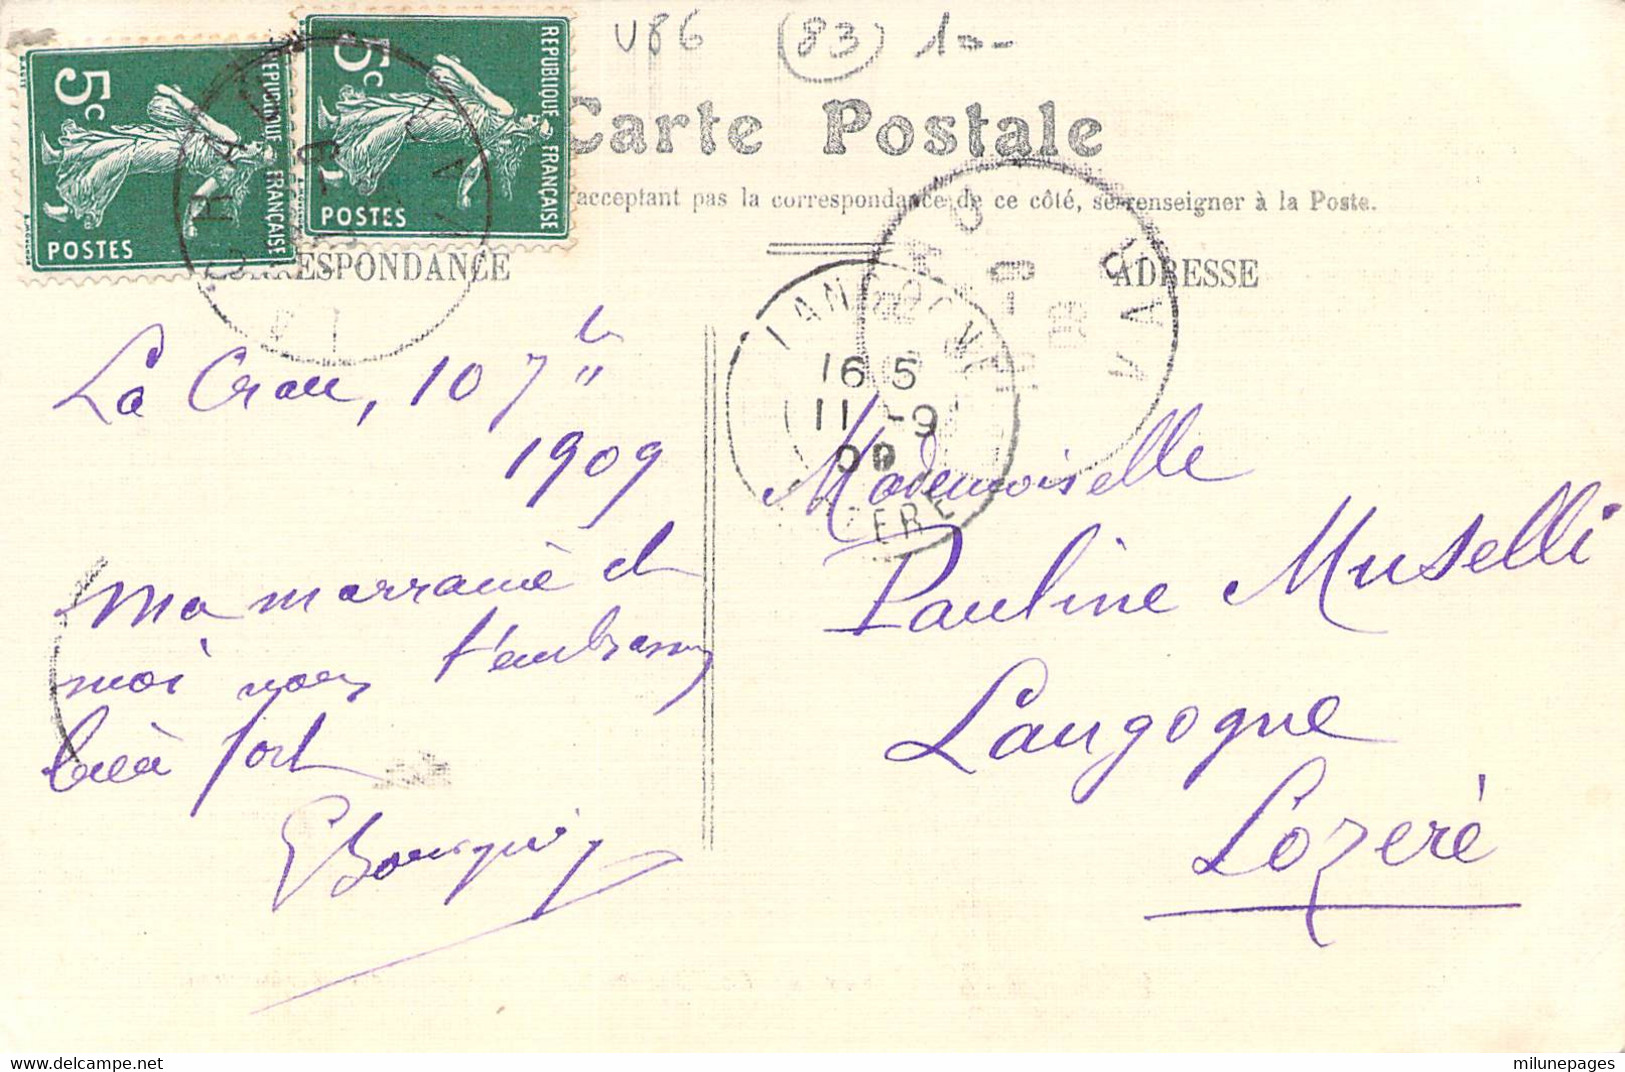 U86 (83) 1--
5c
REPUBLIQUE FRANÇAISE
POSTES
5c
REPUBLIQUE FRANÇAISE
POSTES
Carte Postale
acceptant pas la correspondance de ce côté, se renseigner à la Poste.
CORRESPONDANCE
ADRESSE
LA CRAU
VAR
LANGOGNE
16 5
11 -9
09
LOZERE
La Crau, 10 7bre
1909
Ma marraine et
moi nous t'embrassons
bien fort
Mademoiselle
Pauline Muselli
Langogne
Lozère
milunepages